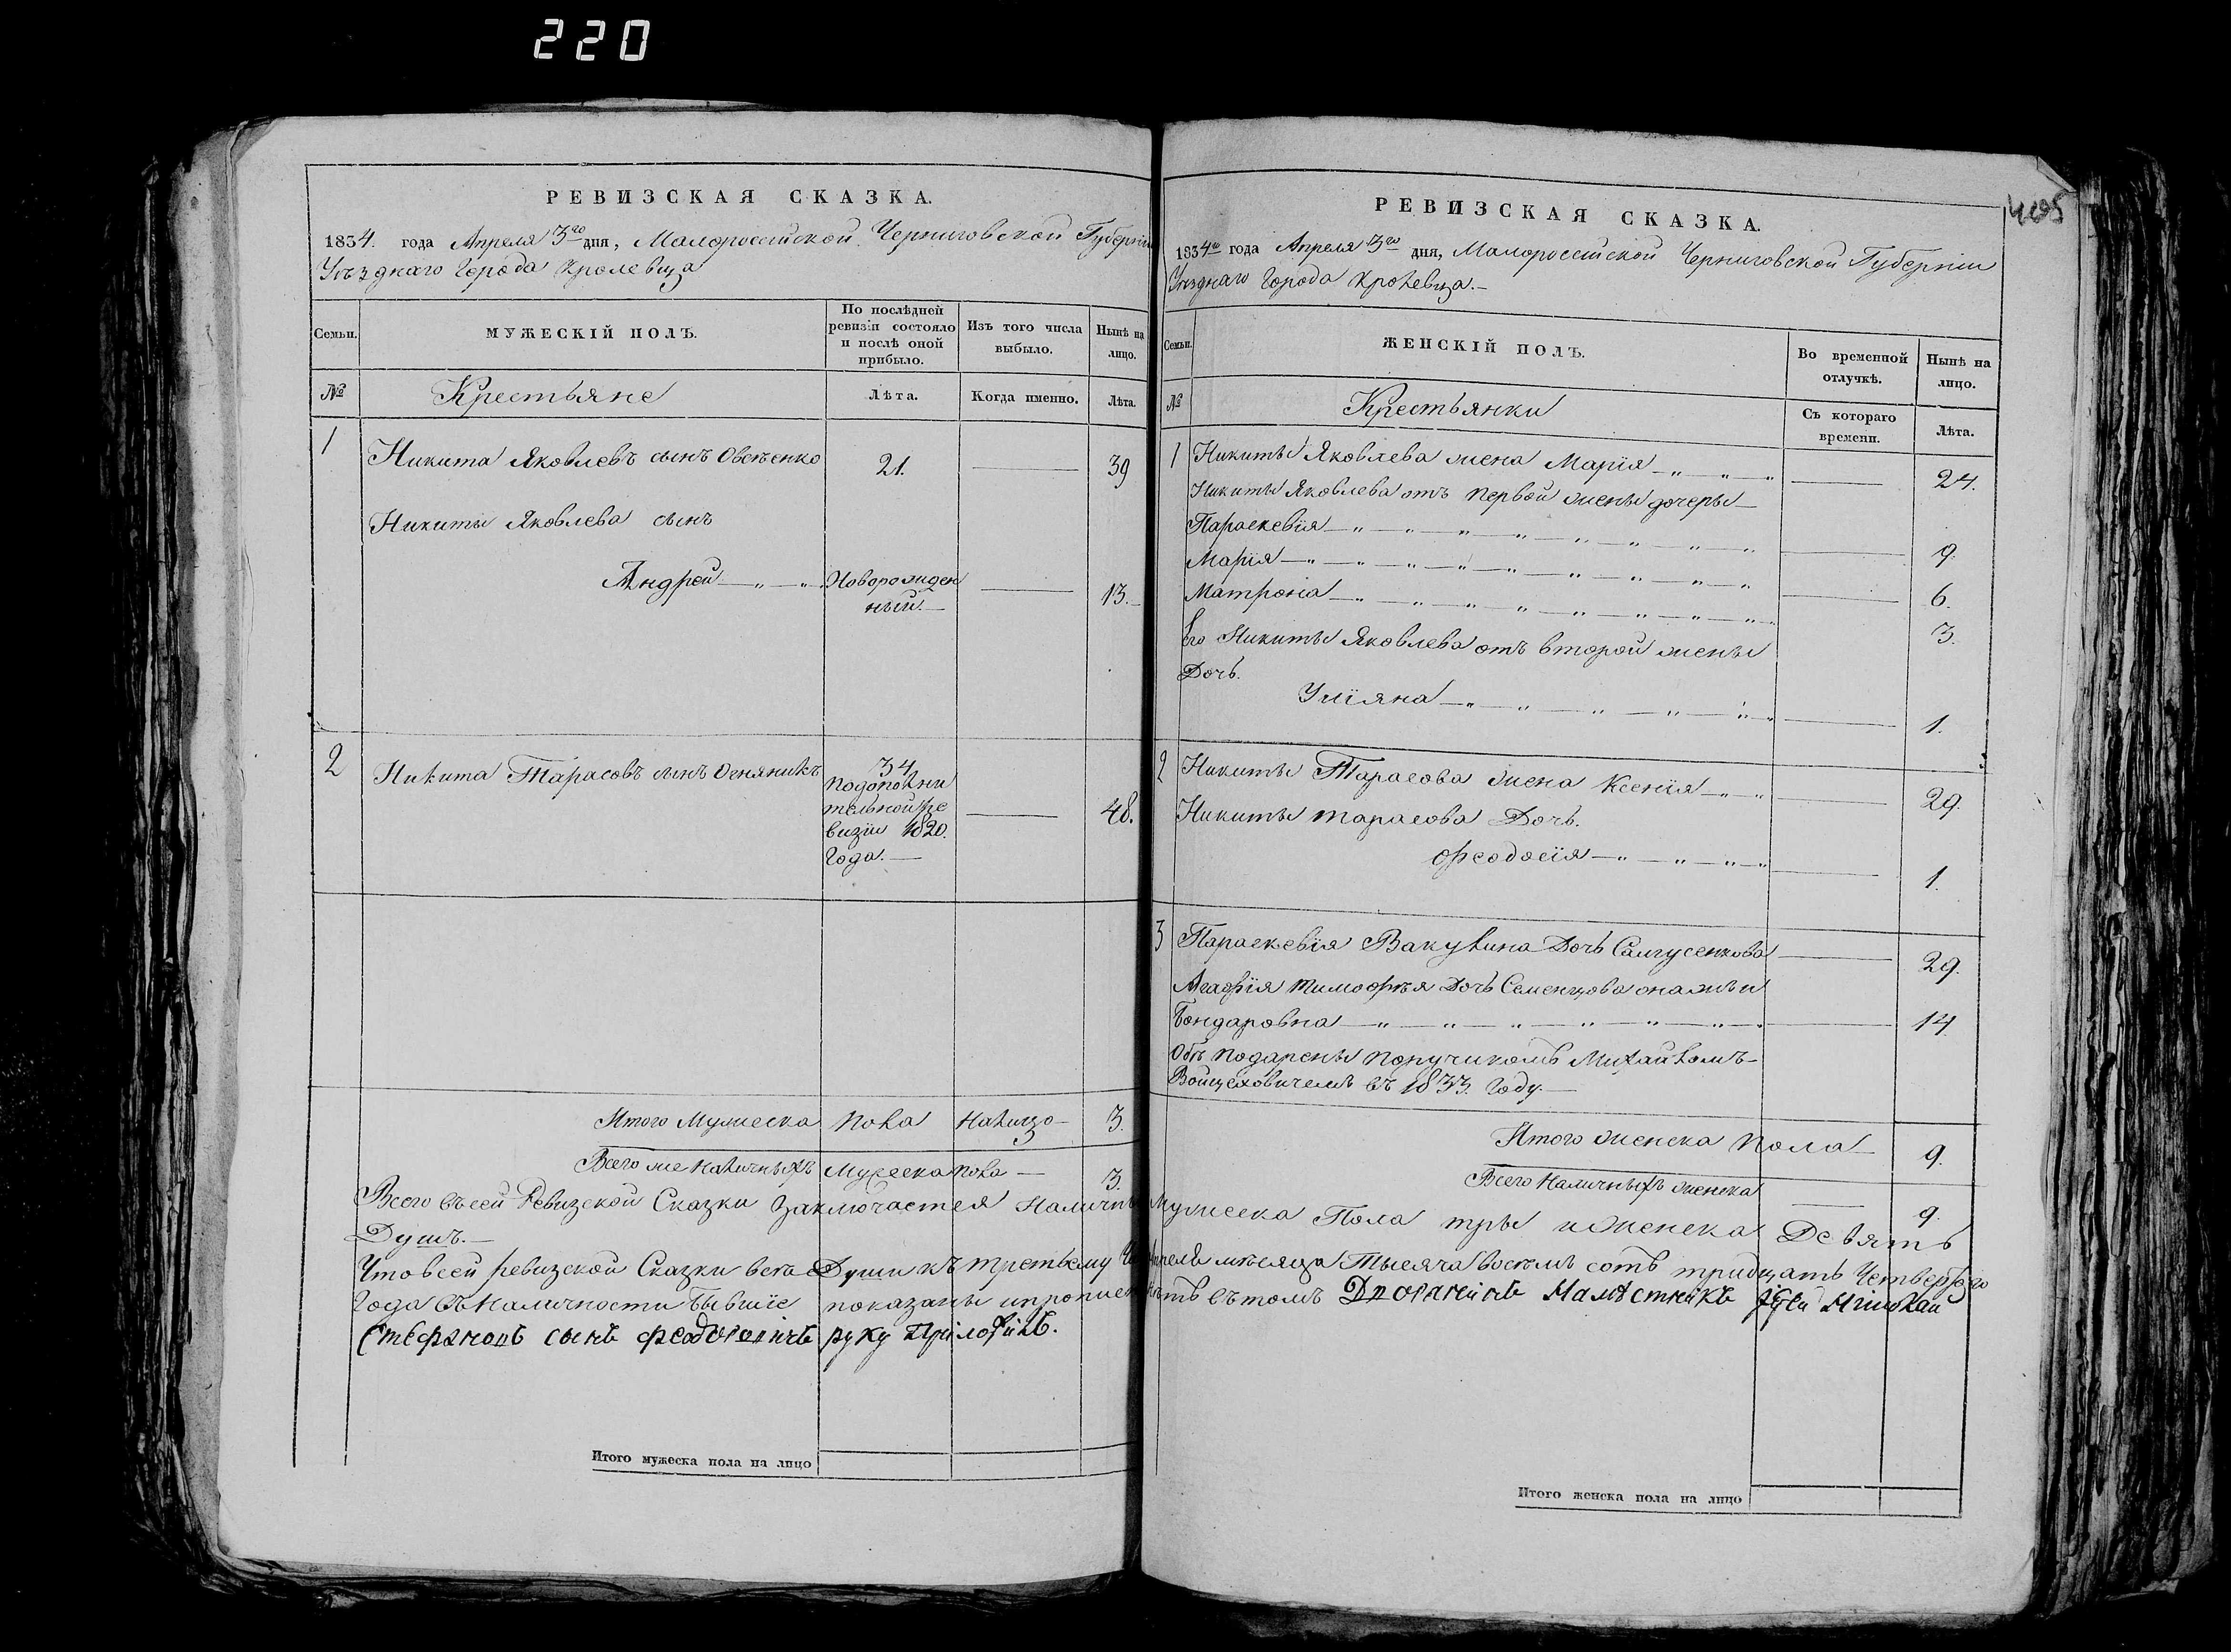 220
РЕВИЗСКАЯ СКАЗКА.
1834. года Апреля 3го дня, Малороссийской Черниговской Губернии
Уѣзднаго Города Кролевца
Семьи. МУЖЕСКІЙ ПОЛЪ. По послѣдней ревизіи состояло и послѣ оной прибыло. Изъ того числа выбыло. Нынѣ на лицо.
№ Крестьяне Лѣта. Когда именно. Лѣта.
1 Никита Яковлевъ сынъ Овсѣенко 21. 39
Никиты Яковлева сынъ
Андрей Новорожден 13.
ный.
2 Никита Тарасовъ сынъ Огняникъ 34
подополни
тельной ре
визіи 1820. 48.
Года.
Итого Мужеска пола налицо 3.
Всего же Наличныхъ Мужеска пола 3.
РЕВИЗСКАЯ СКАЗКА. 405
1834го года Апреля 3го дня, Малороссийской Черниговской Губерніи
Уѣзднаго Города Кролевца.
Семьи. ЖЕНСКІЙ ПОЛЪ. Во временной отлучкѣ. Нынѣ на лицо.
№ Крестьянки Съ котораго времени. Лѣта.
1 Никиты Яковлева жена Марія 24.
Никиты Яковлева отъ первой жены дочеры
Параскевія 9.
Марія 6.
Матрона 3.
Его Никиты Яковлева отъ второй жены
Дочь.
Уліяна 1.
2 Никиты Тарасова жена Ксенія 29.
Никиты тарасова Дочь.
Феодосія 1.
3 Параскевія Вакулина Дочь 29.
Агафія тимофѣя Дочь Семенцова онажъ и
Бондаровна 14.
Обѣ подарены поручикомъ Михайломъ
Войцеховичемъ въ 1833. Году.
Итого женска пола 9.
Всего Наличныхъ женска 9.
Всего въсей Ревизской Сказки заключается Наличныхъ Мужеска Пола тры и Женска Девять
Душъ.
Что всей ревизской Сказки все Души къ третьему Апреля мѣсяца Тысяча восемъ сотъ тридцать Четвертого
Года съ Наличности бывшіе показаны и въ томъ
сынъ руку Приложилъ.
Итого мужеска пола на лицо
Итого женска пола на лицо